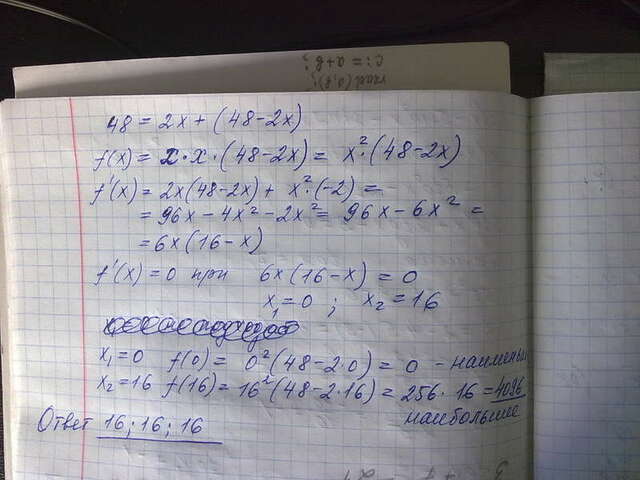 c:=a+b;
read(a,b);
48 = 2x + (48-2x)
f(x) = x·x·(48-2x) = x²·(48-2x)
f'(x) = 2x(48-2x) + x²·(-2) =
= 96x - 4x² - 2x² = 96x - 6x² =
= 6x(16-x)
f'(x) = 0 при 6x(16-x) = 0
x₁=0 ; x₂=16
x₁=0 f(0) = 0²(48-2·0) = 0 - наимень
x₂=16 f(16) = 16²(48-2·16) = 256·16 = 4096
наибольшее
Ответ 16; 16; 16